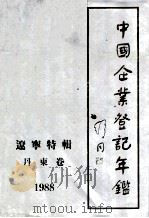 中國企業登記年鑑
遼寧特輯
丹東卷
1988